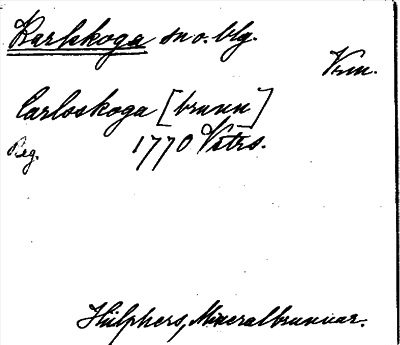 Karlskoga sn o. blg.
Vrm.
Carlsskoga [brunn]
Reg. 1770 Västrs.
Hülphers, Mineralbrunnar.